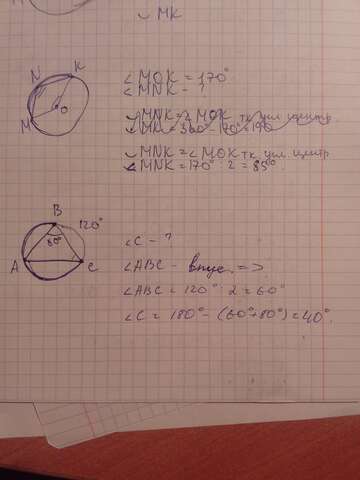 ◡ MK
N
K
O
M
∠MOK = 170°
∠MNK - ?
◡MNK = ∠MOK тк угл центр
◡MK = 360° - 170° = 190
◡MNK = ∠MOK тк. угл. центр
∠MNK = 170° : 2 = 85°
B
120°
80°
A
C
∠C - ?
∠ABC - впис. =>
∠ABC = 120° : 2 = 60°
∠C = 180° - (60°+80°) = 40°